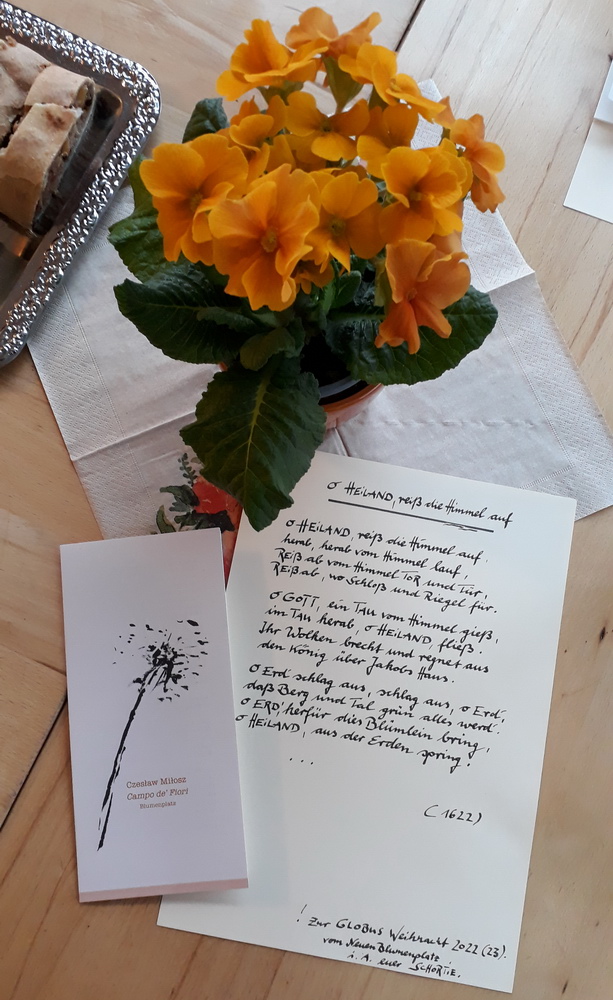 O HEILAND, reiß die Himmel auf
O HEILAND, reiß die Himmel auf,
herab, herab vom Himmel lauf,
Reiß ab vom Himmel TOR und Tür,
Reiß ab, wo Schloß und Riegel für.
O GOTT, ein TAU vom Himmel gieß,
im TAU herab, O HEILAND, fließ.
Ihr Wolken brecht und regnet aus
den König über Jakobs Haus.
O Erd' schlag aus, schlag aus, o Erd',
daß Berg und Tal grün alles werd'.
O ERD' herfür dies Blümlein bring,
O HEILAND, aus der Erden spring!
...
(1622)
! Zur GLOBUS Weihnacht 2022 (23).
vom Neuen Blumenplatz!
i. A. euer SCHORTIE.
Czesław Miłosz
Campo de' Fiori
Blumenplatz